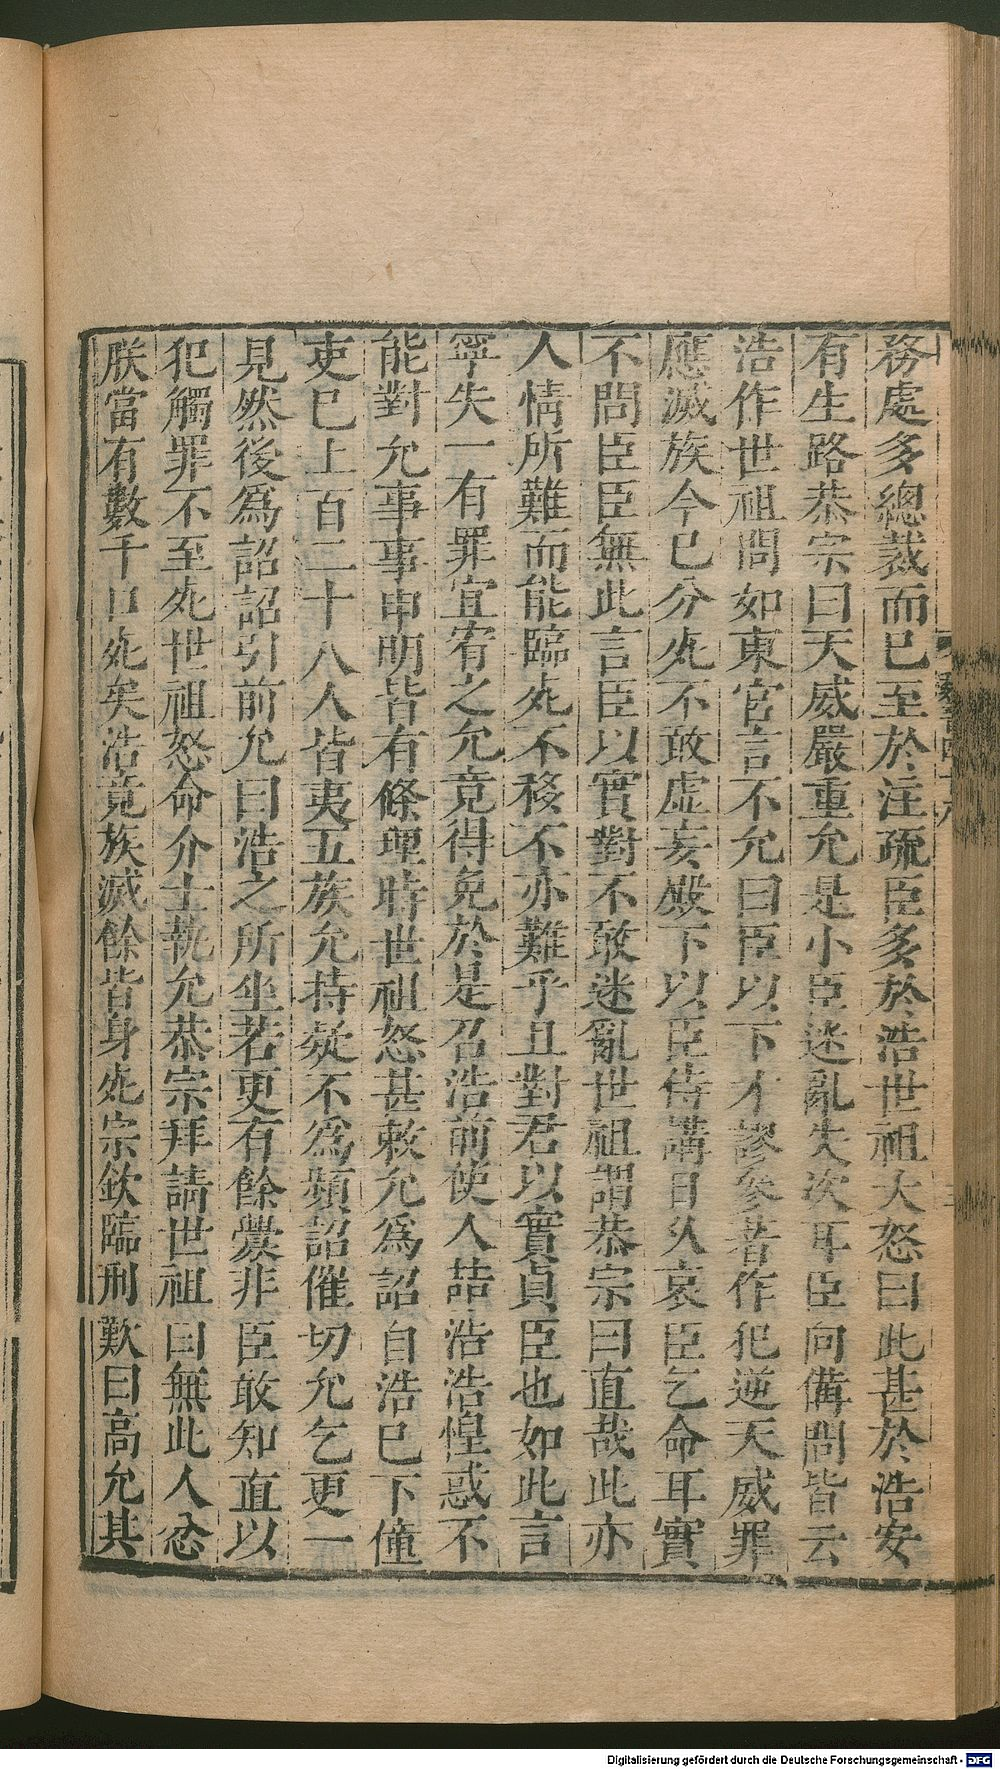 務處多總裁而已至於注疏臣多於浩世祖大怒曰此甚於浩安
有生路恭宗曰天威嚴重允是小臣迷亂失次耳臣向備問皆云
浩作世祖問如東宮言不允曰臣以下才謬參著作犯逆天威罪
應滅族今已分死不敢虛妄殿下以臣侍講日久哀臣乞命耳實
不問臣臣無此言臣以實對不敢迷亂世祖謂恭宗曰直哉此亦
人情所難而能臨死不移不亦難乎且對君以實貞臣也如此言
寧失一有罪宜宥之允竟得免於是召浩前使人詰浩浩惶惑不
能對允事事申明皆有條理時世祖怒甚敕允為詔自浩已下僮
吏已上百二十八人皆夷五族允持疑不為頻詔催切允乞更一
見然後為詔詔引前允曰浩之所坐若更有餘釁非臣敢知直以
犯觸罪不至死世祖怒命介士執允恭宗拜請世祖曰無此人忿
朕當有數千口死矣浩竟族滅餘皆身死宗欽臨刑歎曰高允其
Digitalisierung gefördert durch die Deutsche Forschungsgemeinschaft - DFG